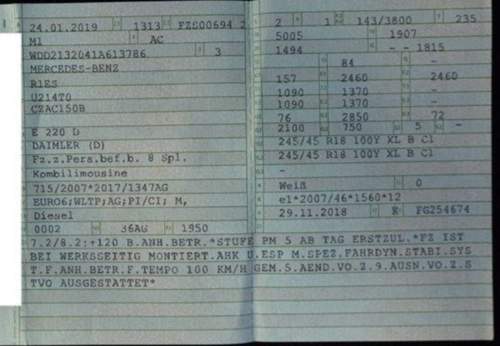 24.01.2019 1313 FZS00694 2
M1 AC
WDD2132041A613786 3
MERCEDES-BENZ
R1ES
U214T0
CZAC150B
E 220 D
DAIMLER (D)
Fz.z.Pers.bef.b. 8 Spl.
Kombilimousine
715/2007*2017/1347AG
EURO6;WLTP;AG;PI/CI; M,
Diesel
0002 36AG 1950
2 1 143/3800 235
5005 1907
1494 - - 1815
84 -
157 2460 2460
1090 1370 -
1090 1370 -
76 2850 72
2100 750 5 -
245/45 R18 100Y XL B C1
245/45 R18 100Y XL B C1
-
-
Weiß 0
e1*2007/46*1560*12
29.11.2018 K FG254674
7.2/8.2:+120 B.ANH.BETR.*STUFE PM 5 AB TAG ERSTZUL.*FZ IST
BEI WERKSSEITIG MONTIERT.AHK U.ESP M.SPEZ.FAHRDYN.STABI.SYS
T.F.ANH.BETR.F.TEMPO 100 KM/H GEM.5.AEND.VO.Z.9.AUSN.VO.Z.S
TVO AUSGESTATTET*